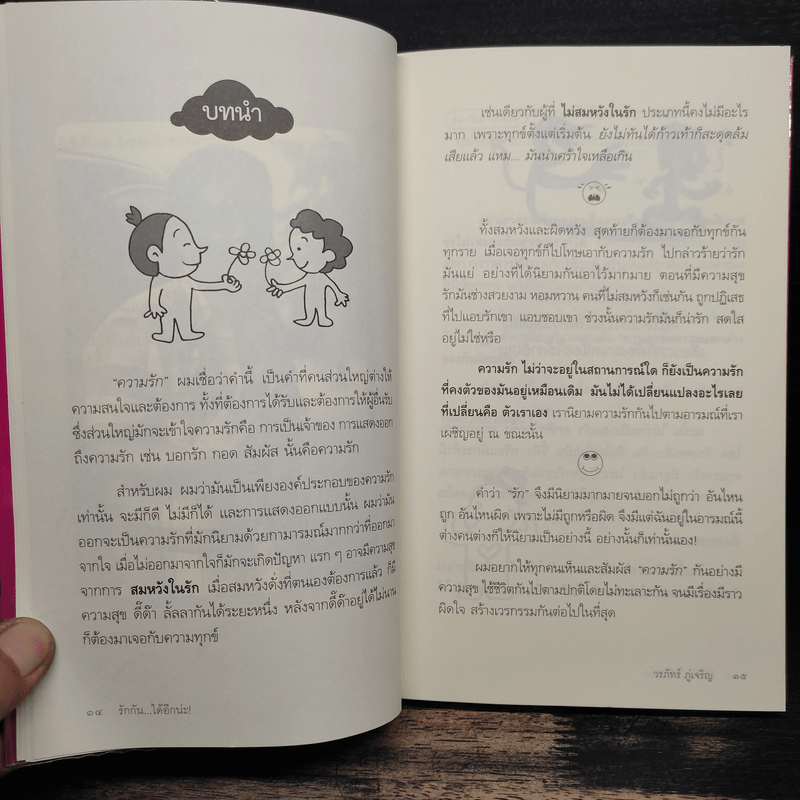 บทนำ
"ความรัก" ผมเชื่อว่าคำนี้ เป็นคำที่คนส่วนใหญ่ต่างให้
ความสนใจและต้องการ ทั้งที่ต้องการได้รับและต้องการให้ผู้อื่นรับ
ซึ่งส่วนใหญ่มักจะเข้าใจความรักคือ การเป็นเจ้าของ การแสดงออก
ถึงความรัก เช่น บอกรัก กอด สัมผัส นั้นคือความรัก
สำหรับผม ผมว่ามันเป็นเพียงองค์ประกอบของความรัก
เท่านั้น จะมีก็ดี ไม่มีก็ได้ และการแสดงออกแบบนั้น ผมว่ามัน
ออกจะเป็นความรักที่มักนิยามด้วยกามารมณ์มากกว่าที่ออกมา
จากใจ เมื่อไม่ออกมาจากใจก็มักจะเกิดปัญหา แรก ๆ อาจมีความสุข
จากการ สมหวังในรัก เมื่อสมหวังดั่งที่ตนเองต้องการแล้ว ก็มี
ความสุข ดี๊ด๊า ลั้ลลากันได้ระยะหนึ่ง หลังจากดี๊ด๊าอยู่ได้ไม่นาน
ก็ต้องมาเจอกับความทุกข์
๑๔ รักกัน...ได้อีกน่ะ!
เช่นเดียวกับผู้ที่ ไม่สมหวังในรัก ประเภทนี้คงไม่มีอะไร
มาก เพราะทุกข์ตั้งแต่เริ่มต้น ยังไม่ทันได้ก้าวเท้าก็สะดุดล้ม
เสียแล้ว แหม... มันน่าเศร้าใจเหลือเกิน
ทั้งสมหวังและผิดหวัง สุดท้ายก็ต้องมาเจอกับทุกข์กัน
ทุกราย เมื่อเจอทุกข์ก็ไปโทษเอากับความรัก ไปกล่าวร้ายว่ารัก
มันแย่ อย่างที่ได้นิยามกันเอาไว้มากมาย ตอนที่มีความสุข
รักมันช่างสวยงาม หอมหวาน คนที่ไม่สมหวังก็เช่นกัน ถูกปฏิเสธ
ที่ไปแอบรักเขา แอบชอบเขา ช่วงนั้นความรักมันก็น่ารัก สดใส
อยู่ไม่ใช่หรือ
ความรัก ไม่ว่าจะอยู่ในสถานการณ์ใด ก็ยังเป็นความรัก
ที่คงตัวของมันอยู่เหมือนเดิม มันไม่ได้เปลี่ยนแปลงอะไรเลย
ที่เปลี่ยนคือ ตัวเราเอง เรานิยามความรักกันไปตามอารมณ์ที่เรา
เผชิญอยู่ ณ ขณะนั้น
คำว่า "รัก" จึงมีนิยามมากมายจนบอกไม่ถูกว่า อันไหน
ถูก อันไหนผิด เพราะไม่มีถูกหรือผิด จึงมีแต่ฉันอยู่ในอารมณ์นี้
ต่างคนต่างก็ให้นิยามเป็นอย่างนี้ อย่างนั้นก็เท่านั้นเอง!
ผมอยากให้ทุกคนเห็นและสัมผัส "ความรัก" กันอย่างมี
ความสุข ใช้ชีวิตกันไปตามปกติโดยไม่ทะเลาะกัน จนมีเรื่องมีราว
ผิดใจ สร้างเวรกรรมกันต่อไปในที่สุด
วรภัทร์ ภู่เจริญ ๑๕